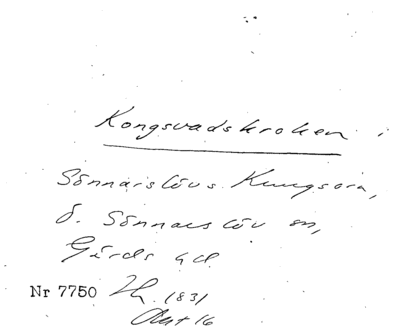 Kongsvadskroken
Sönnarslövs Kungsora,
Ö. Sönnarslöv sn,
Gärds hd
Nr 7750 1831
16